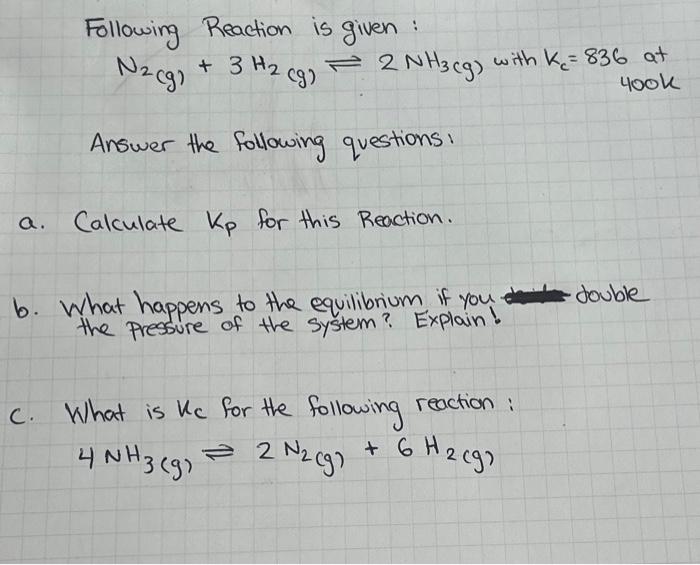 Following Reaction is given :
N2(g) + 3 H2(g) ⇌ 2 NH3(g) with Kc = 836 at
400K
Answer the following questions:
a. Calculate Kp for this Reaction.
b. What happens to the equilibrium if you double
the pressure of the system? Explain!
c. What is Kc for the following reaction :
4 NH3(g) ⇌ 2 N2(g) + 6 H2(g)